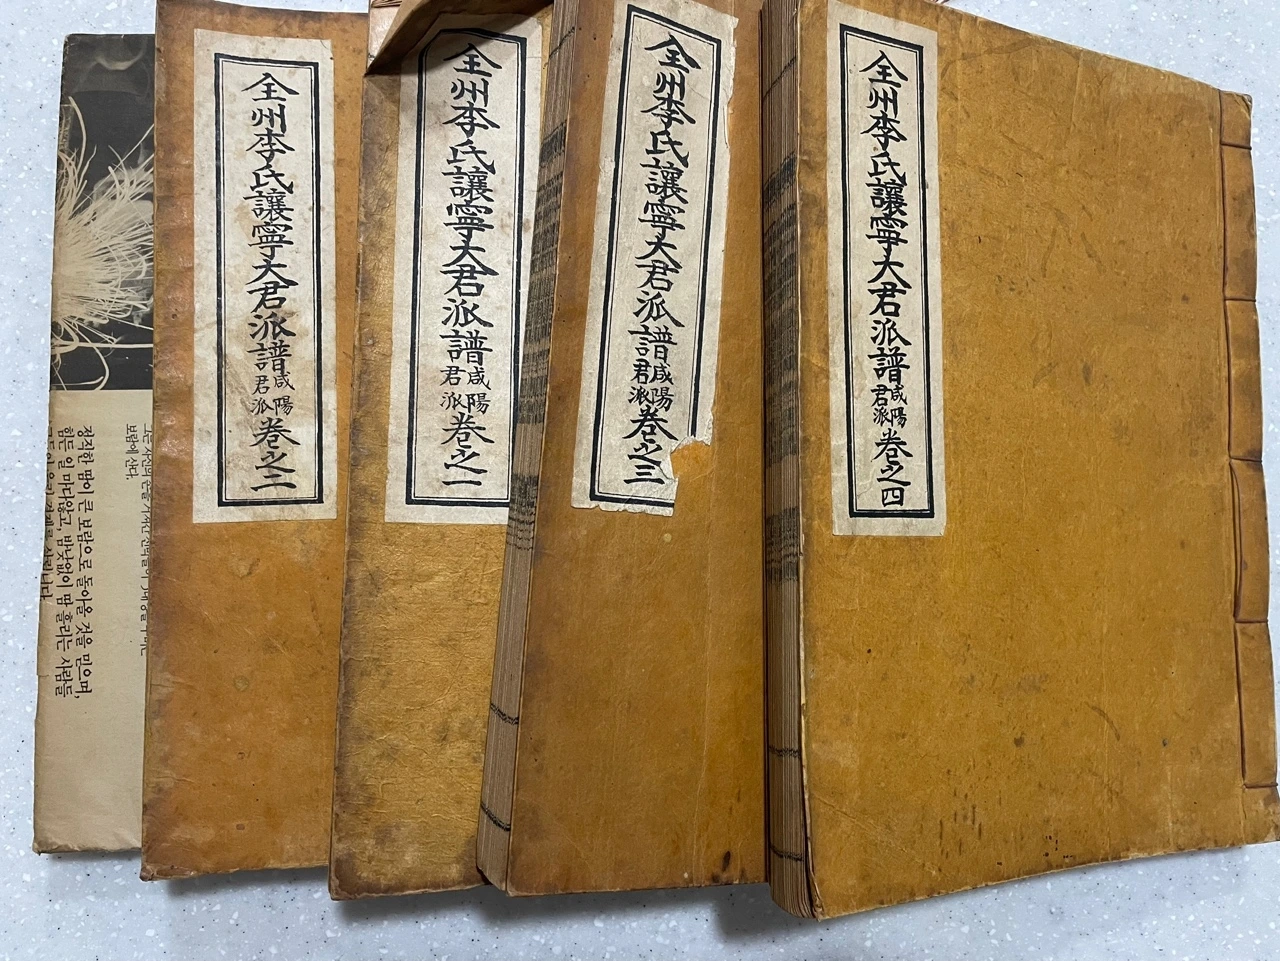 全州李氏讓寧大君派譜 咸陽君派 卷之二
全州李氏讓寧大君派譜 咸陽君派 卷之一
全州李氏讓寧大君派譜 咸陽君派 卷之三
全州李氏讓寧大君派譜 咸陽君派 卷之四
보람에 산다.
정직한 땀이 큰 보람으로 돌아올 것을 믿으며,
힘든 일 마다않고, 밤낮없이 땀 흘리는 사람들